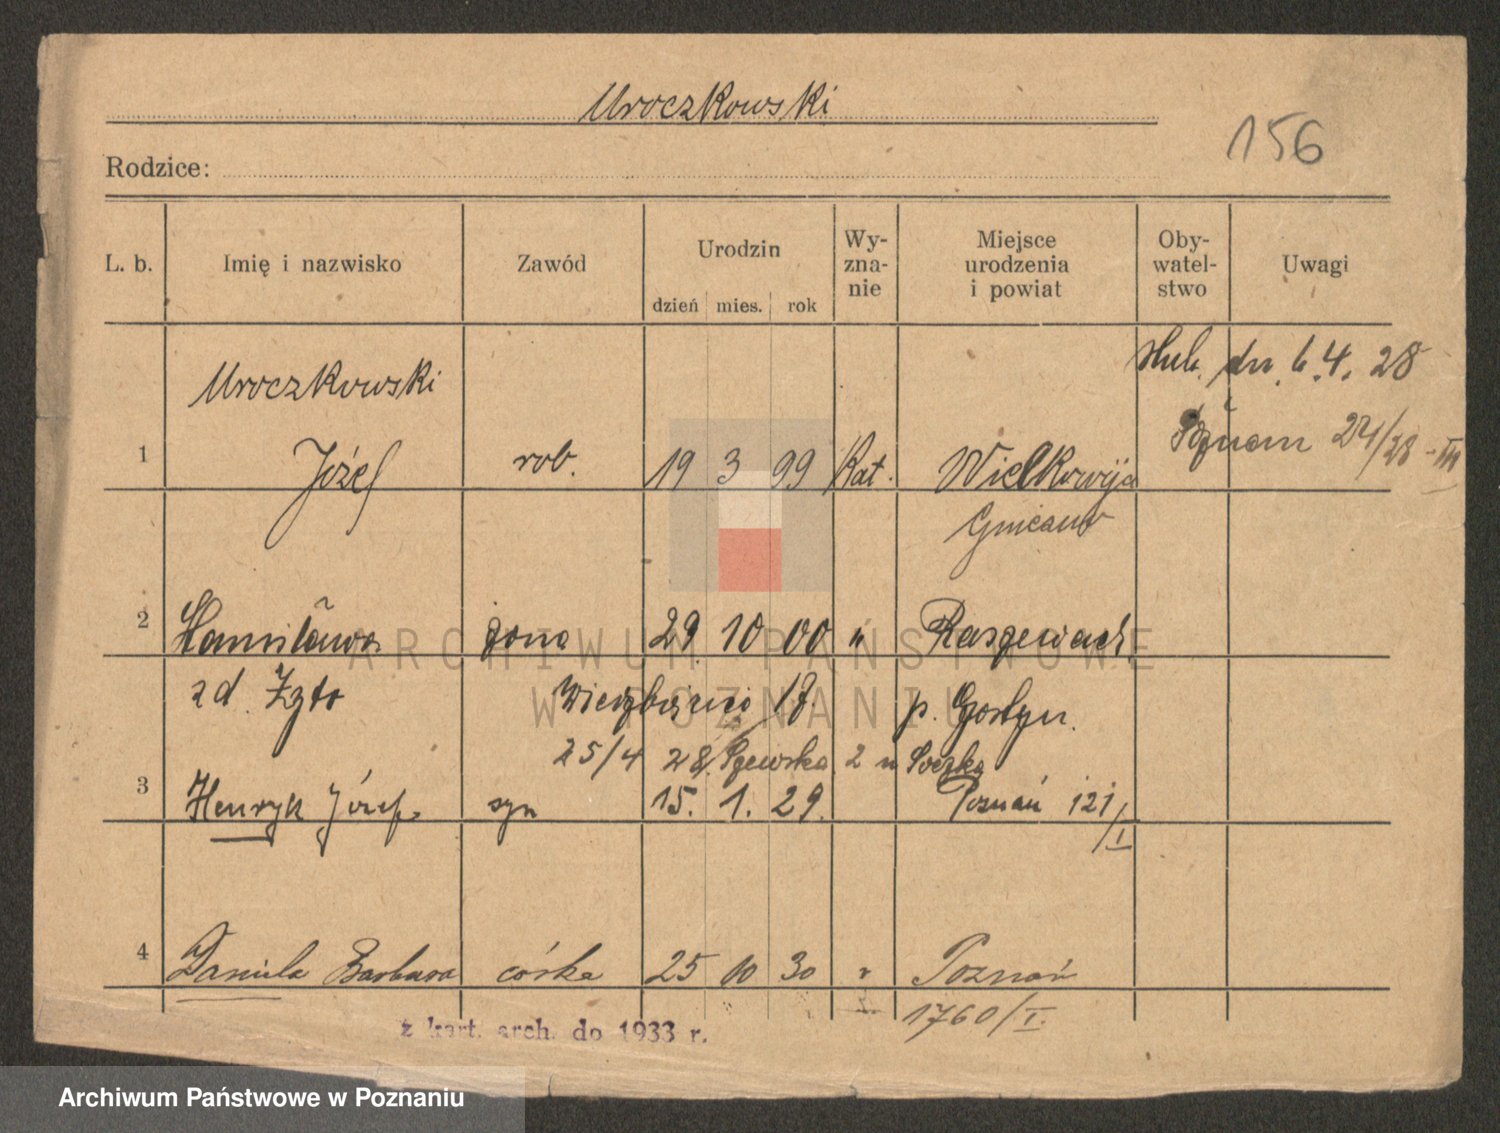 Uroczkowski
156
Rodzice:
L. b. Imię i nazwisko Zawód Urodzin dzień mies. rok Wy-zna-nie Miejsce urodzenia i powiat Oby-watel-stwo Uwagi
dn. 6.4.28
Uroczkowski
Poznań 24/28 - III
1 Józef rob. 19 3 99 Kat. Wielkowyja
2 Stanisława żona 29 10 00 " Raszewach
zd. Zgto 18. p. Gostyn.
25/4 28. Szewska 2 u
3 Henryk Józef syn 15. 1. 29. Poznań 121/I
4 Daniela Barbara córka 25 10 30 " Poznań
1760/I.
z kart. arch. do 1933 r.
ARCHIWUM PAŃSTWOWE
W POZNANIU
Archiwum Państwowe w Poznaniu